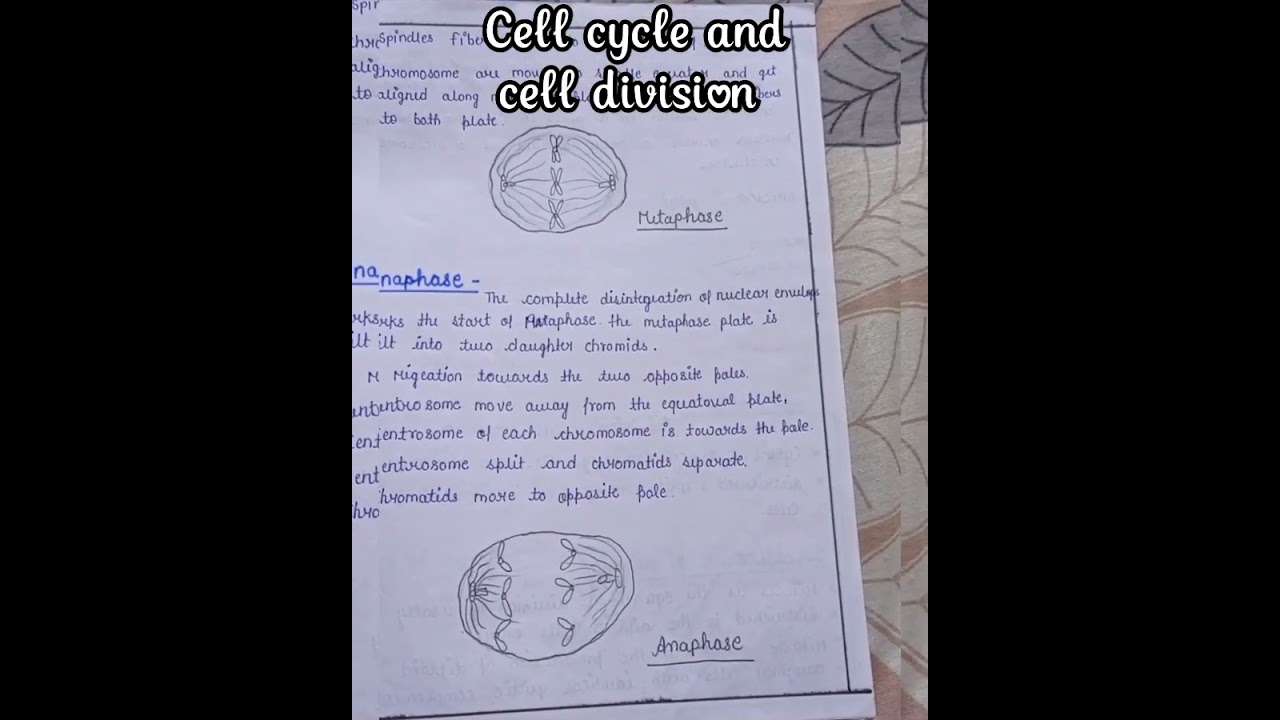 Cell cycle and
cell division
Spir
chro Spindles fibe
alig hromosome are mov to s le equator and get
to aligned along bers
to both plate.
Metaphase
na naphase -
The complete disintegration of nuclear envelops
rks rks the start of Anaphase. the metaphase plate is
ilt ilt into two daughter chromids.
M Migration towards the two opposite poles.
ent entrosome move away from the equatoual plate,
ent entrosome of each chromosome is towards the pole.
ent entrosome split and chromatids separate.
hro hromatids move to opposite pole.
Anaphase